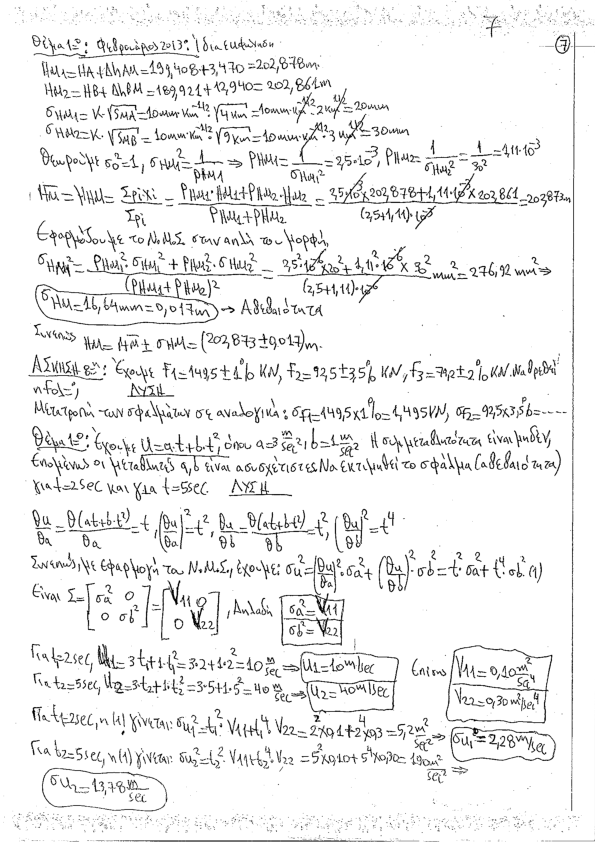 7
Θέμα 1ο: Φεβρουάριος 2013: Ίδια εκφώνηση ⑦
HM1=HA+ΔhAM=199,408+3,470=202,878m.
HM2=HB+ΔhBM=189,921+12,940=202,861m
σHM1=K·√SMA=10mm·Km^-1/2·√4Km=10mm·Km^-1/2·2Km^1/2=20mm
σHM2=K·√SMB=10mm·Km^-1/2·√9Km=10mm·Km^-1/2·3Km^1/2=30mm
Θεωρούμε σ0²=1, σHM1²=1/PHM1 ⇒ PHM1=1/σHM1²=2,5·10^-3, PHM2=1/σHM2²=1/30²=1,11·10^-3
HM=μHM=Σpixi/Σpi=(PHM1·HM1+PHM2·HM2)/(PHM1+PHM2)=(2,5·10^-3×202,878+1,11·10^-3×202,861)/((2,5+1,11)·10^-3)=202,873m
Εφαρμόζουμε το Ν.Μ.Σ στην απλή του μορφή,
σHM²=(PHM1²·σHM1²+PHM2²·σHM2²)/(PHM1+PHM2)²=(2,5²·10^-6×20²+1,11²·10^-6×30²)/((2,5+1,11)·10^-6) mm²=276,92 mm² ⇒
σHM=16,64mm=0,017m → Αβεβαιότητα
Συνεπώς HM=HM±σHM=(202,873±0,017)m.
ΑΣΚΗΣΗ 8η: Έχουμε F1=149,5±1% KN, F2=92,5±3,5% KN, F3=79,2±2% KN. Να βρεθεί
η Fολ=; ΛΥΣΗ
Μετατροπή των σφαλμάτων σε αναλογικά: σF1=149,5×1%=1,495KN, σF2=92,5×3,5%=-----
Θέμα 1ο: Έχουμε U=a·t+b·t², όπου a=3 m/sec², b=1 m/sec² Η συμμεταβλητότητα είναι μηδέν,
Επομένως οι μεταβλητές a, b είναι ασυσχέτιστες. Να εκτιμηθεί το σφάλμα (αβεβαιότητα)
για t=2sec και για t=5sec. ΛΥΣΗ
θu/θa=θ(at+b·t²)/θa=t, (θu/θa)²=t², θu/θb=θ(at+b·t²)/θb=t², (θu/θb)²=t⁴
Συνεπώς, με εφαρμογή του Ν.Μ.Σ., έχουμε: σu²=(θu/θa)²·σa²+(θu/θb)²·σb²=t²·σa²+t⁴·σb² (1)
Είναι Σ=[σa² 0 / 0 σb²]=[V11 0 / 0 V22], Δηλαδή σa²=V11 / σb²=V22
Για t1=2sec, U1=3t1+1·t1²=3·2+1·2²=10 m/sec ⇒ U1=10m/sec Επίσης V11=0,10 m²/sec⁴
Για t2=5sec, U2=3·t2+1·t2²=3·5+1·5²=40 m/sec ⇒ U2=40m/sec V22=0,30 m²/sec⁴
Για t1=2sec, η (1) γίνεται: σu1²=t1²·V11+t1⁴·V22=2²×0,1+2⁴×0,3=5,2 m²/sec² ⇒ σu1=2,28m/sec
Για t2=5sec, η (1) γίνεται: σu2²=t2²·V11+t2⁴·V22=5²×0,10+5⁴×0,30=190 m²/sec² ⇒
σu2=13,78 m/sec